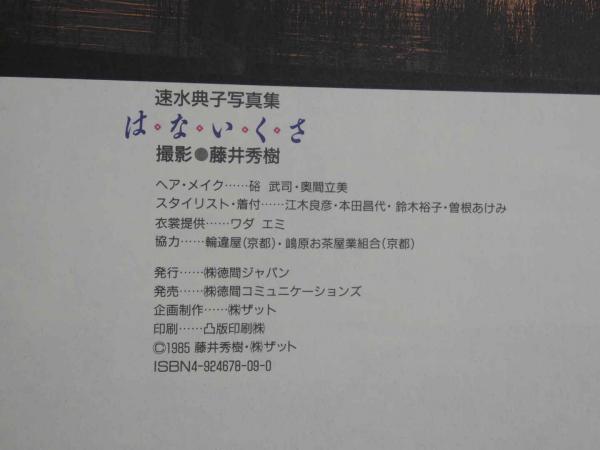 速水典子写真集
は・な・い・く・さ
撮影●藤井秀樹
ヘア・メイク……硲 武司・奥間立美
スタイリスト・着付……江木良彦・本田昌代・鈴木裕子・曽根あけみ
衣裳提供……ワダ エミ
協力……輪違屋(京都)・嶋原お茶屋業組合(京都)
発行……㈱徳間ジャパン
発売……㈱徳間コミュニケーションズ
企画制作……㈱ザット
印刷……凸版印刷㈱
©1985 藤井秀樹・㈱ザット
ISBN4-924678-09-0